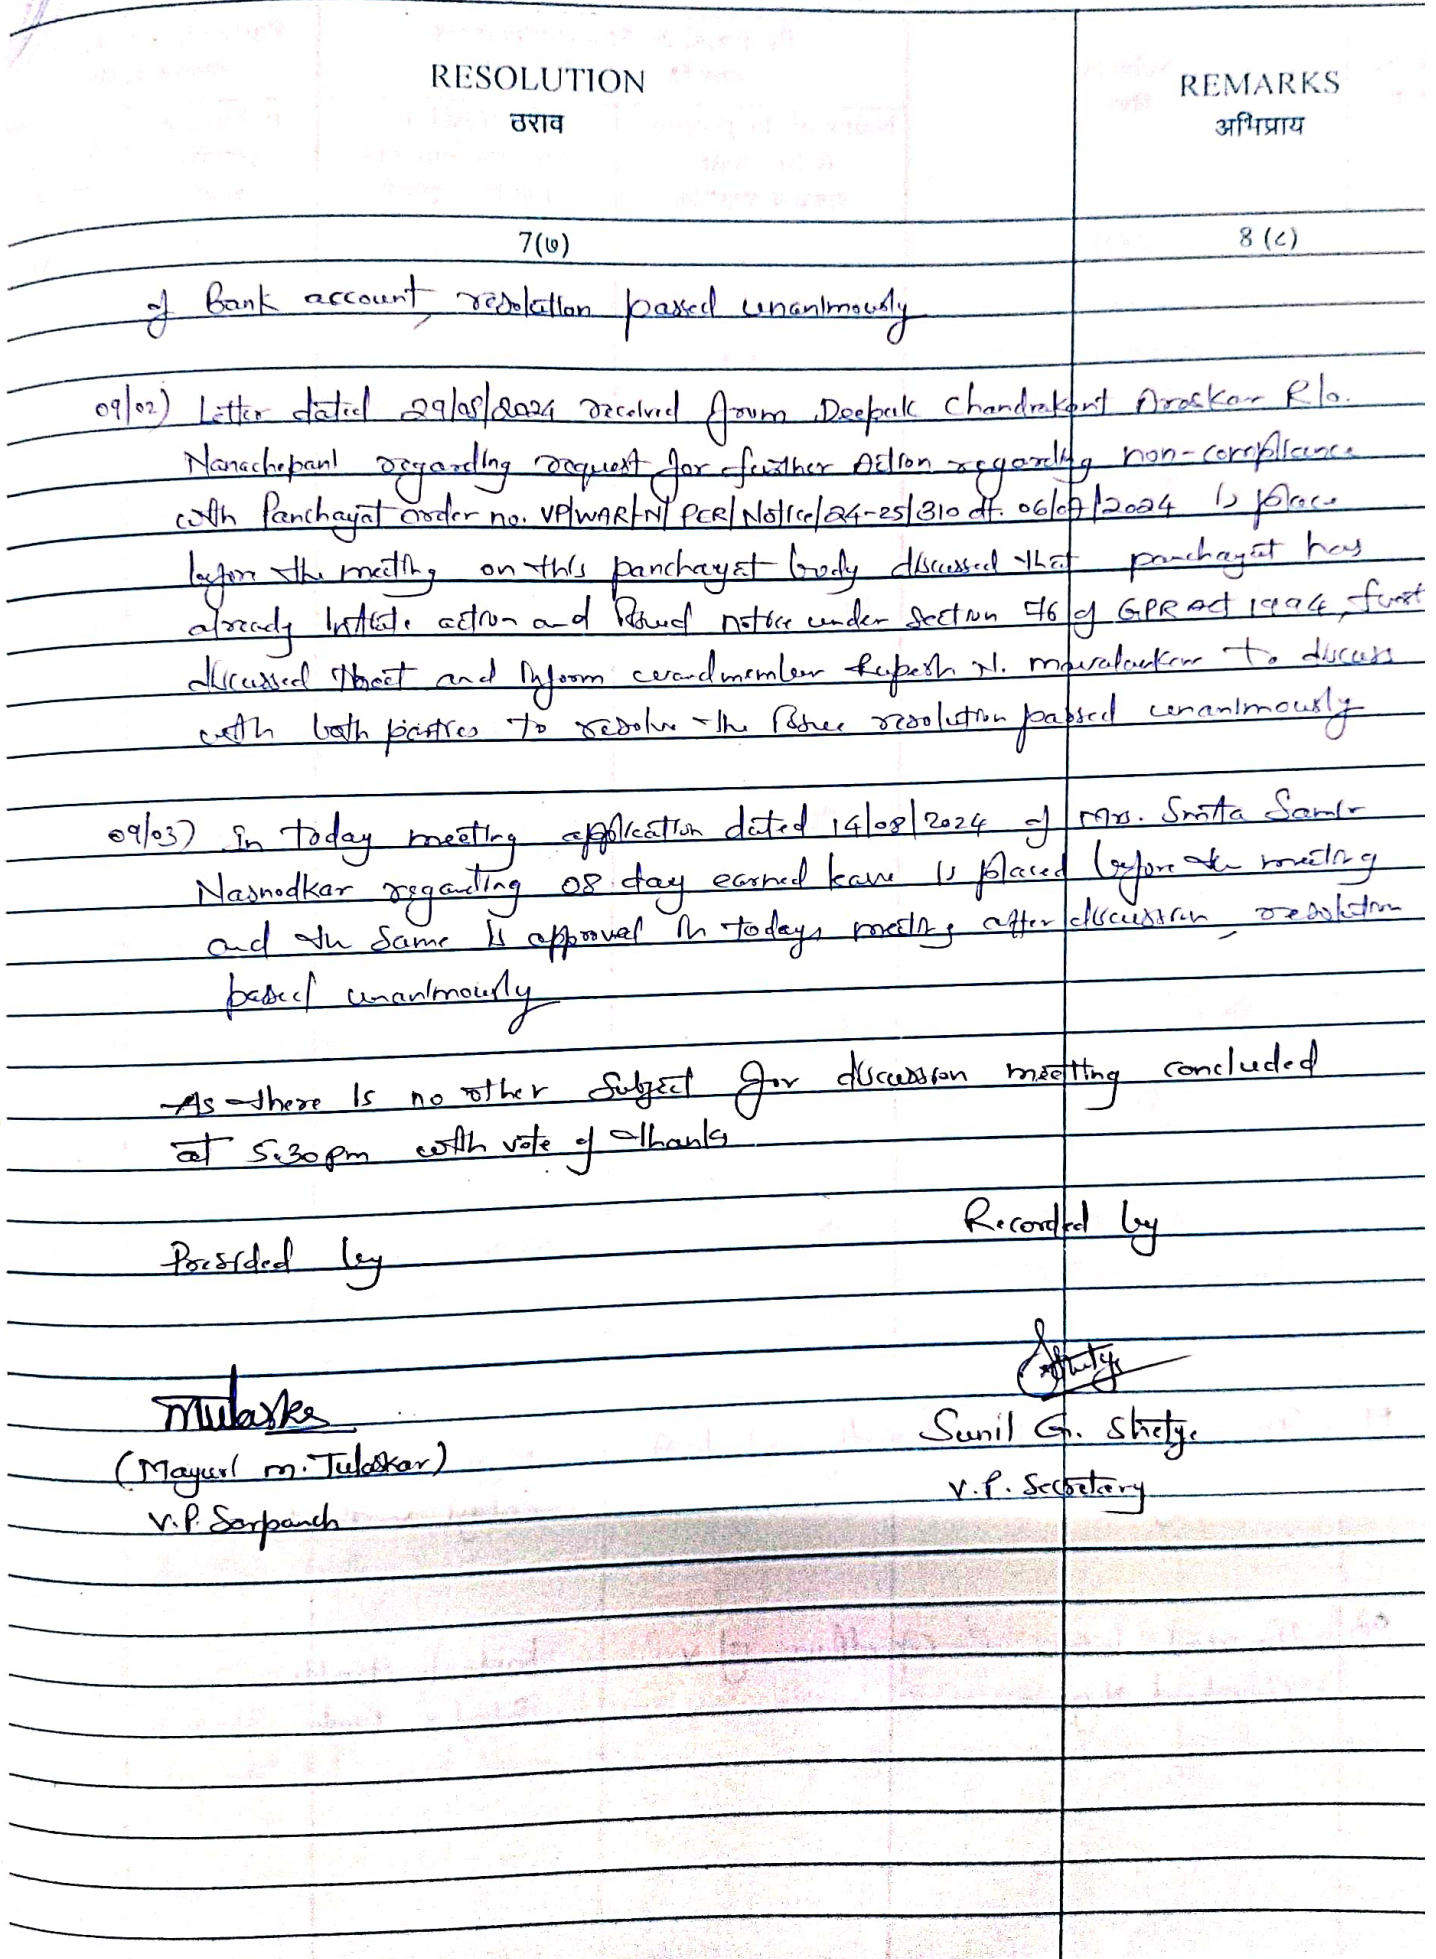 RESOLUTION
ठराव
REMARKS
अभिप्राय
7(७)
8 (८)
of Bank account, resolution passed unanimously
09/02) Letter dated 29/08/2024 received from Deepak Chandrakant Araskar R/o.
Nanachepani regarding request for further Action regarding non-compliance
with Panchayat order no. VP/WAR/-N/ PER/Notice/24-25/310 dt. 06/07/2024 is place
before the meeting on this panchayat body discussed that panchayat has
already initiate action and issued notice under section 76 of GPR Act 1994,
discussed and inform wardmember Rupesh N. mavalankar to discuss
with both parties to resolve the issue resolution passed unanimously
09/03) In today meeting application dated 14/08/2024 of Mrs. Smita Samir
Nasnodkar regarding 08 day earned leave is placed before the meeting
and the same is approval in todays meeting after discussion, resolution
passed unanimously
As there is no other subject for discussion meetting concluded
at 5.30pm with vote of thanks
Recorded by
Presided by
Sunil G. Shetye
(Mayuri m. Tulaskar)
V.P. Secretary
V.P. Sarpanch